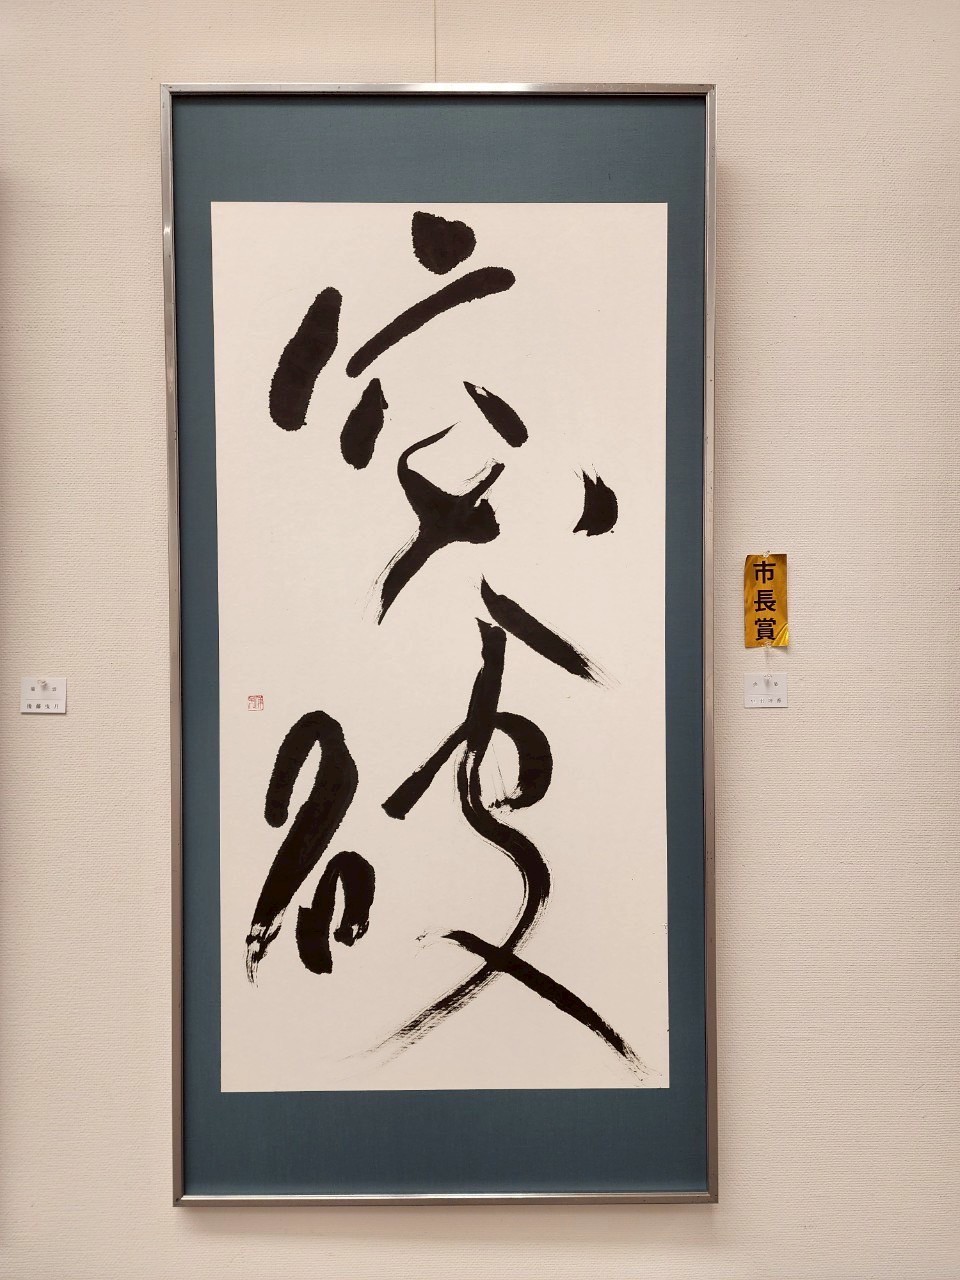 突破
市長賞